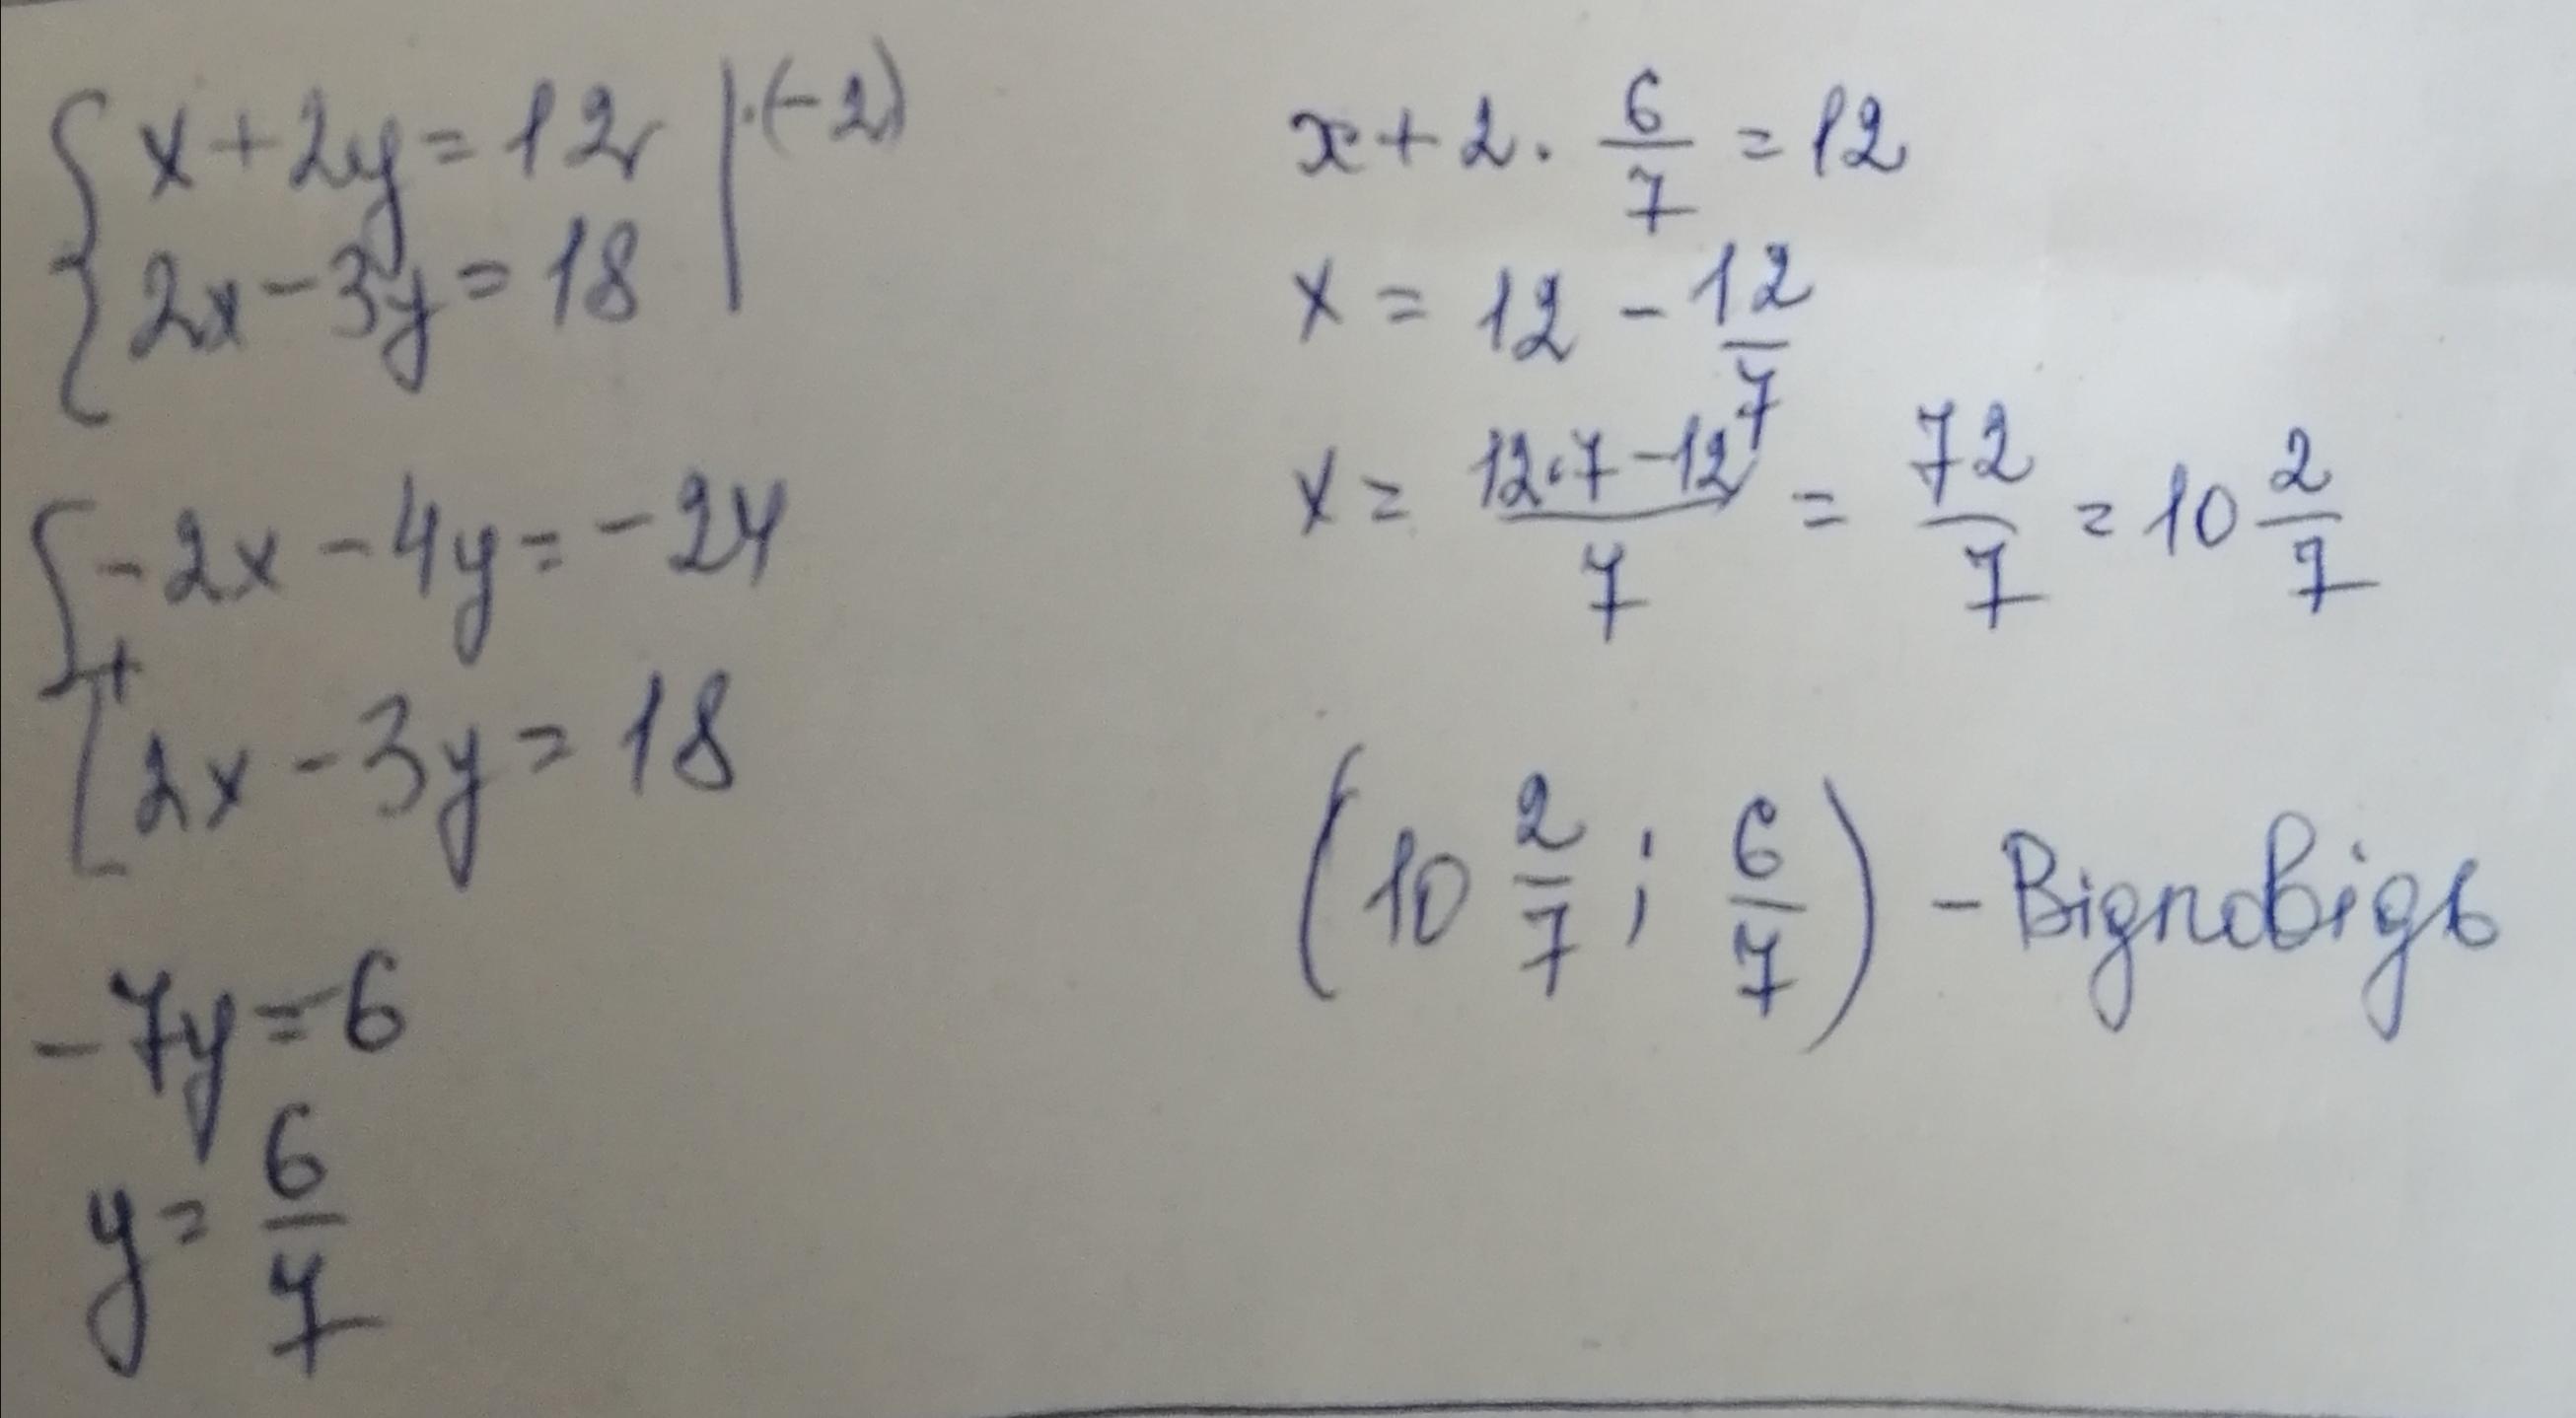 { x + 2y = 12 | ·(-2)
2x - 3y = 18
{ -2x - 4y = -24
+
2x - 3y = 18
-7y = -6
y = 6/7
x + 2 · 6/7 = 12
x = 12 - 12/7
x = (12·7 - 12)/7 = 72/7 = 10 2/7
(10 2/7 ; 6/7) - Відповідь